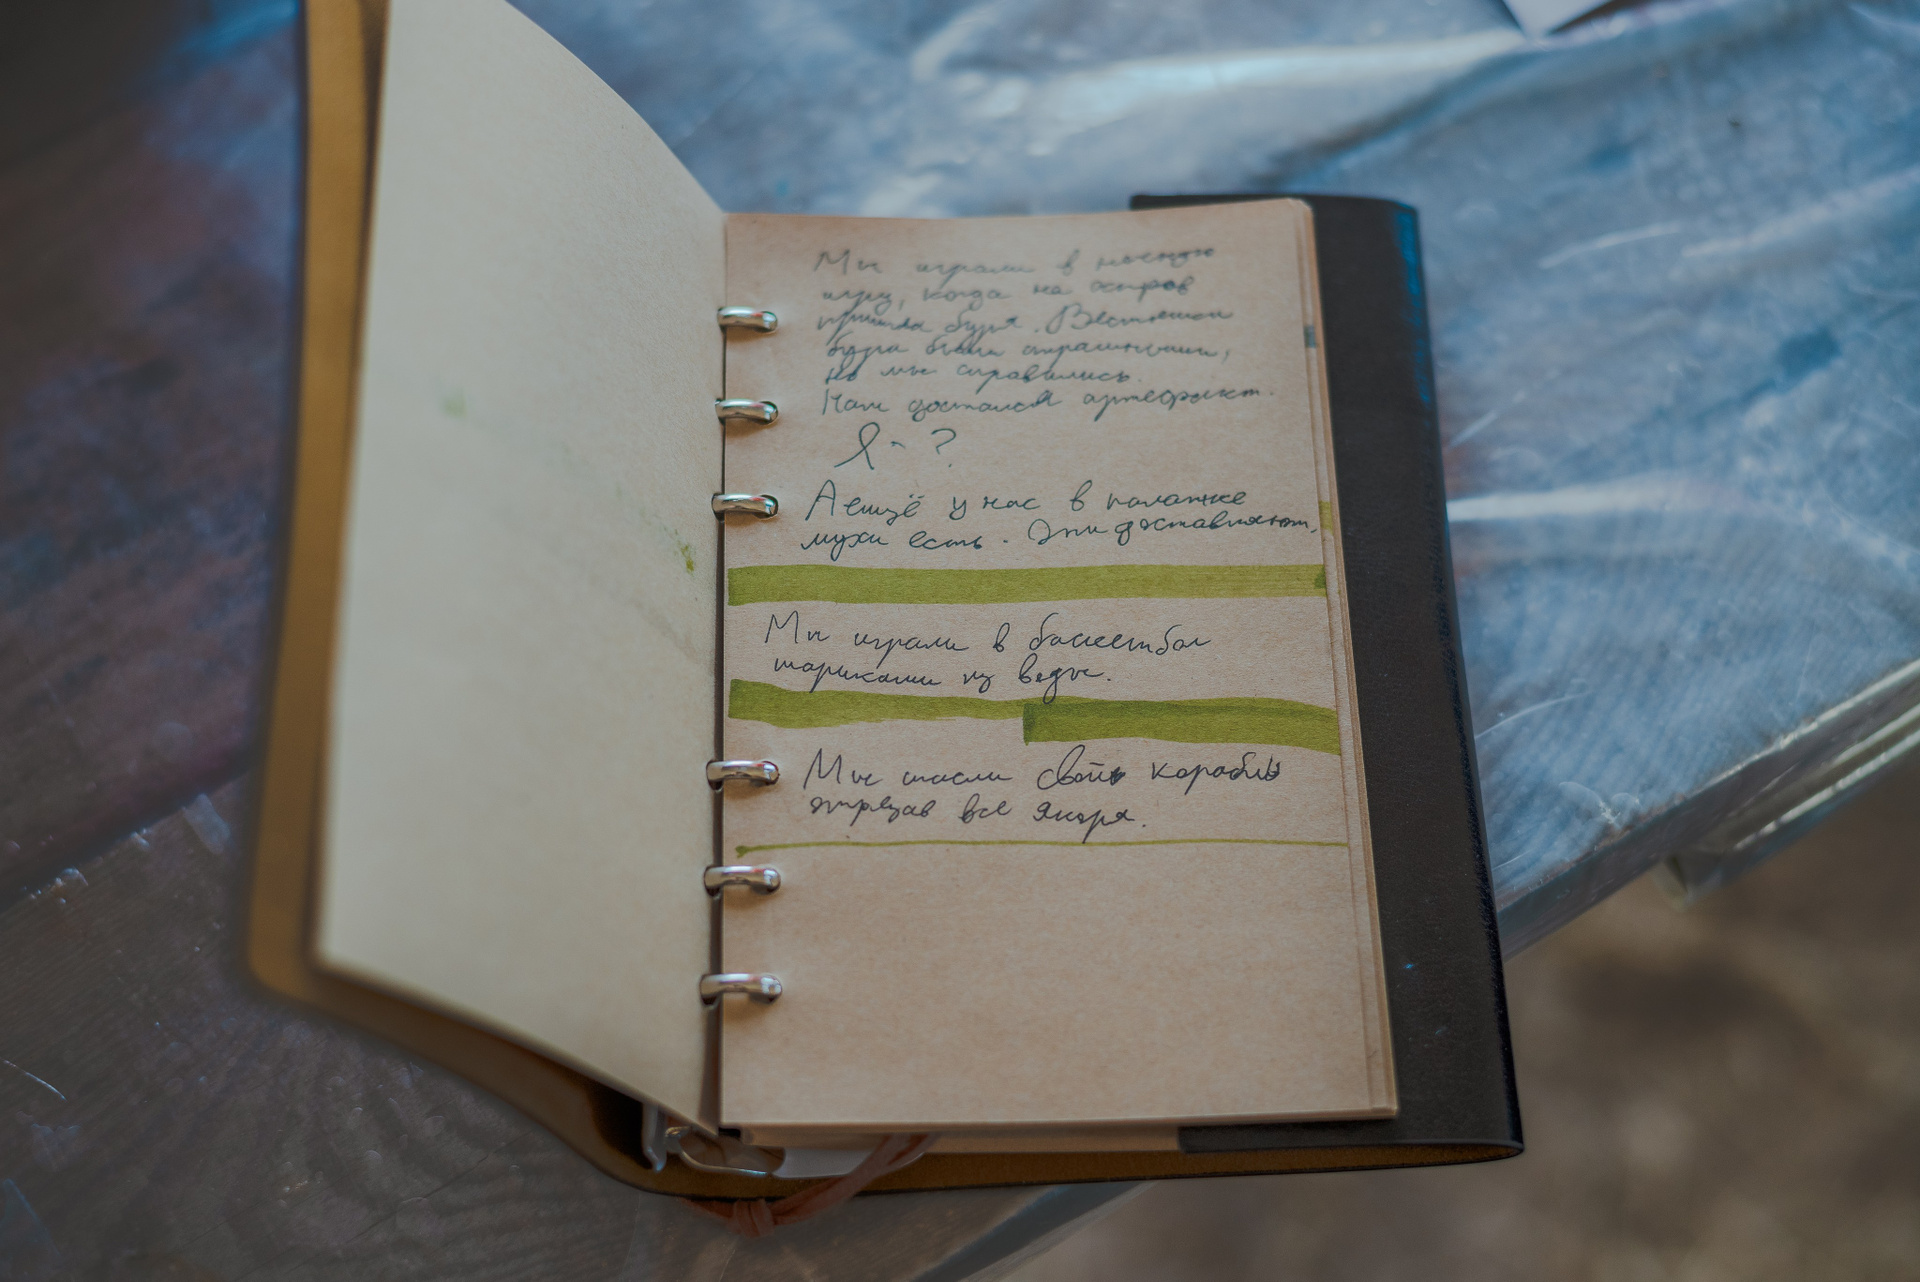 Мы играли в ночную
игру, когда на остров
пришла буря. Вестники
бури были страшными,
но мы справились.
Нам достался артефакт.
Я - ?
А ещё у нас в палатке
мухи есть. Они доставляют.
Мы играли в баскетбол
шариками из воды.
Мы спасли свой корабль
отрезав все якоря.